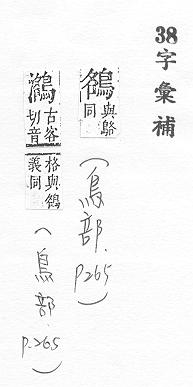 38字彙補
與同
(鳥部.P265)
古客切音格與義同
(鳥部.P.265)